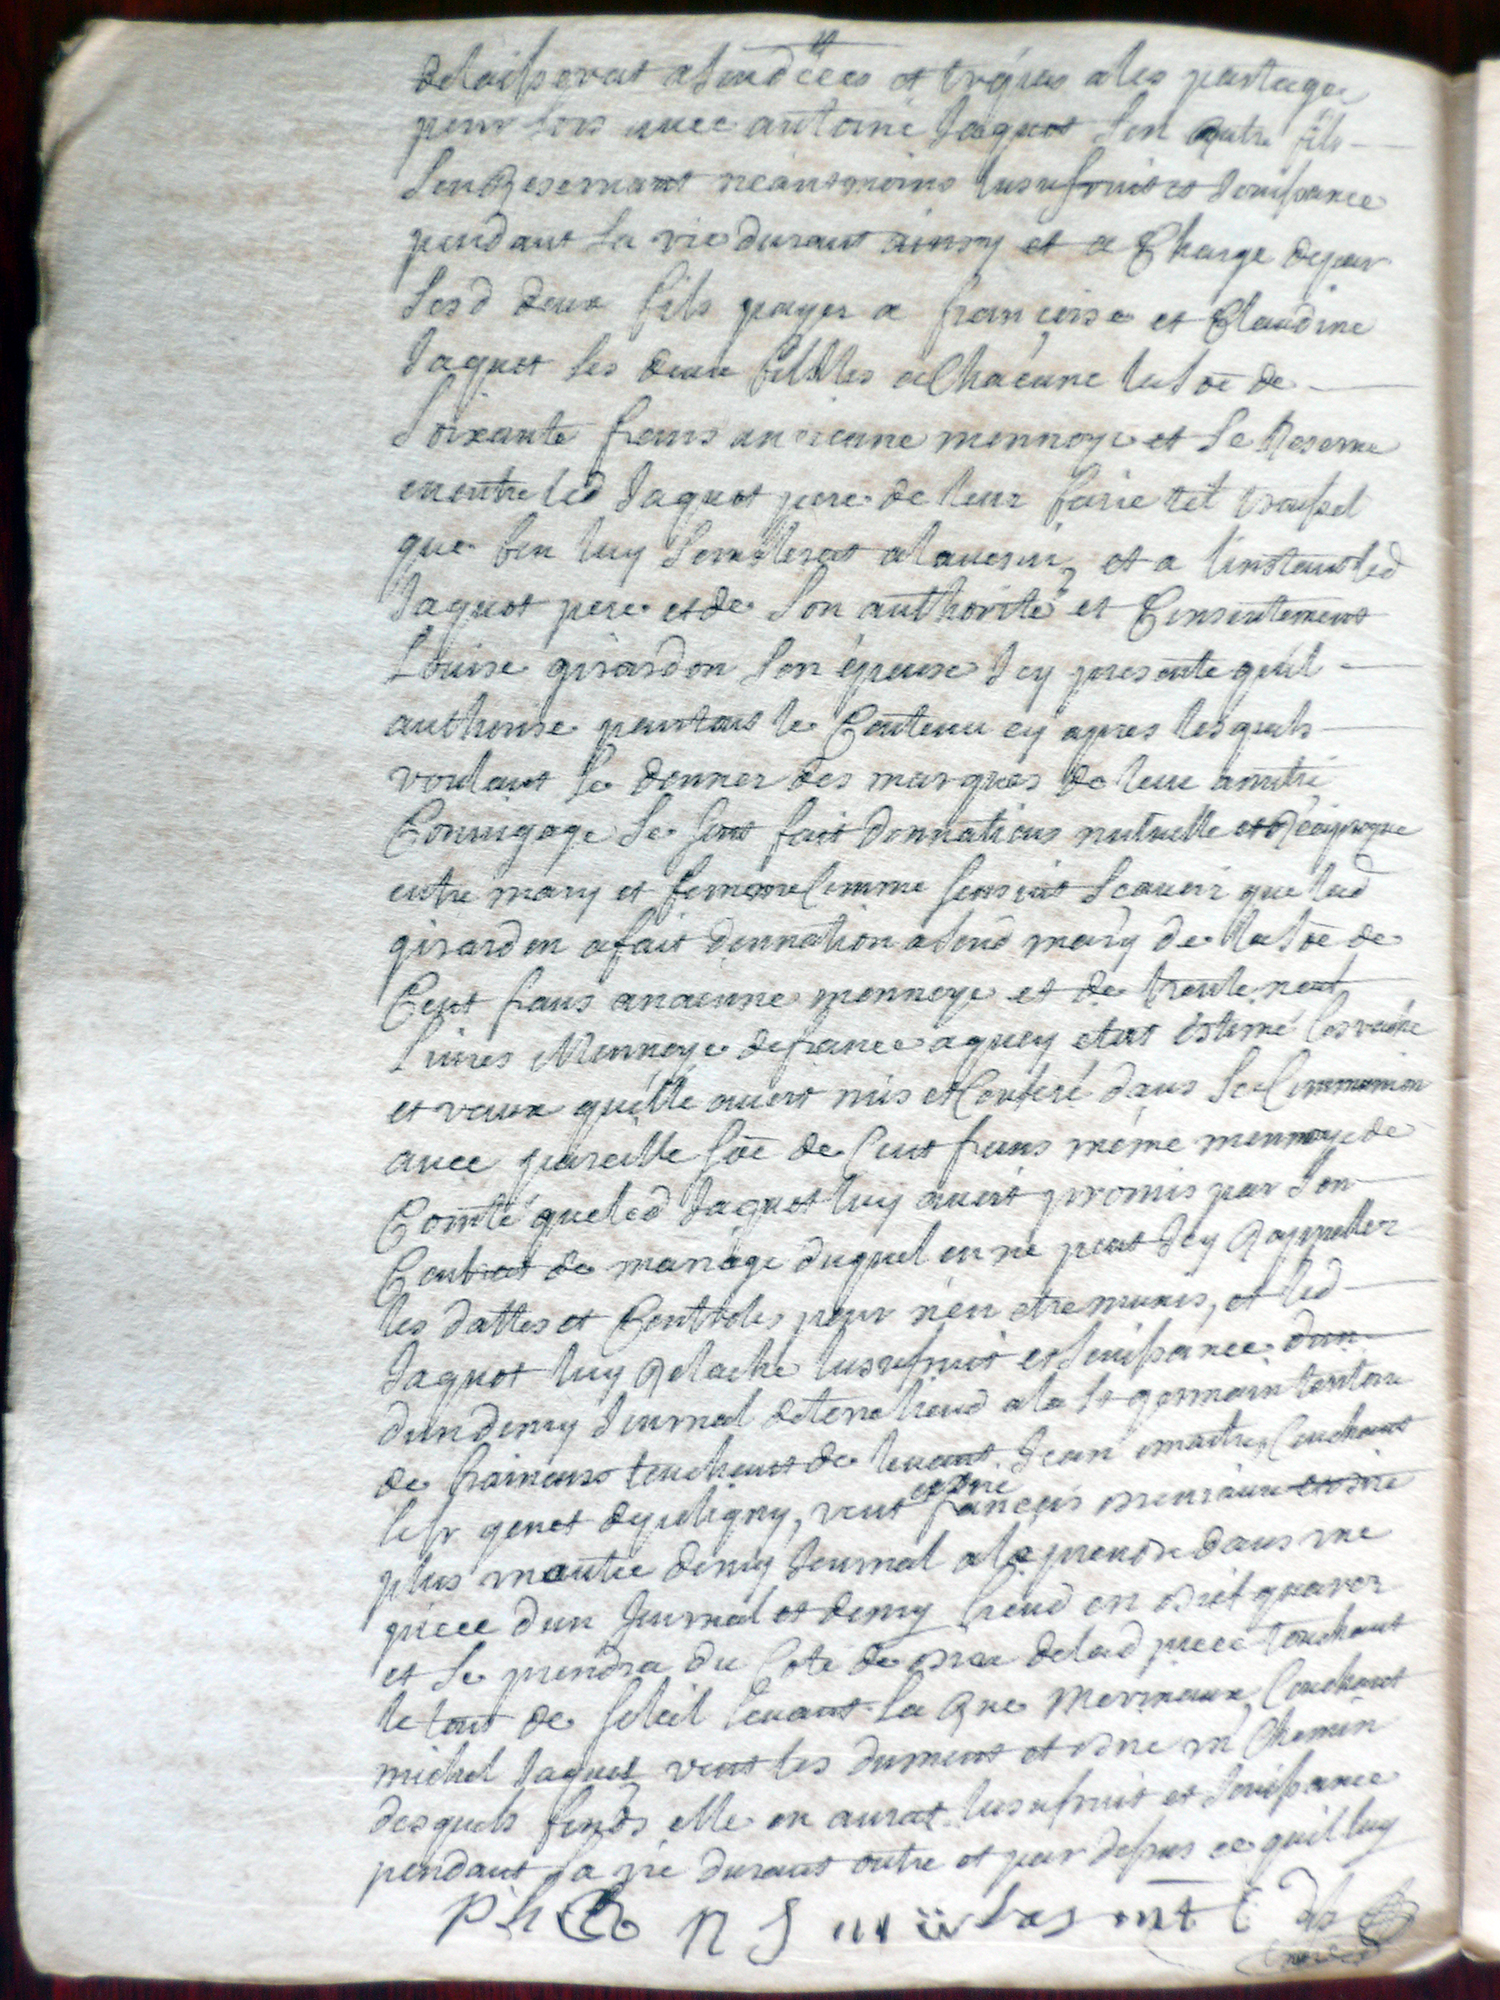 delaisserat a sond. deces et trépas a les partager
pour lors avec antoine Jaquot son autre fils
Son Reservant néantmoins lusufruit et Jouissance
pendant sa vie durant ainsy et a Charge de par
Sesd deux fils payer a françoise et Claudine
Jaquot ses deux fillles a Chacune la soe de
Soixante frans ancienne monnoye et se Reserve
en outre led Jaquot pere de leur faire tel troussel
que bon luy Semblerat alavenir, et a linstant led
Jaquot pere et de son authorité et Consentement
Louise girardon son épouse Jcy presente quil
authorise pour tout le Contenu cy apres lesquels
voulant se donner des marques de leur amitié
Conjugage se sont fait donnations mutuelle et Réciproque
entre mary et femme Comme sensuit Scavoir que lad
girardon a fait donnation a sond mary de la soe de
Cent frans ancienne monnoye et de trente neuf
Livres Monnoye de france a quoy etat éstimé les vache
et veaux quélle avoit mis et Conferé dans la Communion
avec pareille soe de Cent frans méme monnoye de
Comté que led Jaquot luy avoit promis par son
Contrat de mariage duquel on ne peut Jcy Rappeller
les dattes et Controle, pour n'en etre munis, et led
Jaquot luy Relache lusufruit et Jouissance dun
dun demy Journal de terre lieud a la St germain territoire
de frainois touchant de levant Jean maitre, Couchant
le sr genet depoligny, vent et bire françois meniaux et bire
plus un autre demy Journal a le prendre dans une
piece dun Journal et demy lieud en
et se prendra du Coté de bise de lad piece touchant
le tout de soleil levant la Rue Meriaux, Couchant
michel Jaquot, vent les dumont et bire un Chemin
desquels fonds elle en aurat lusufruit et Jouissance
pendant sa vie durant outre et par dessus ce quil luy